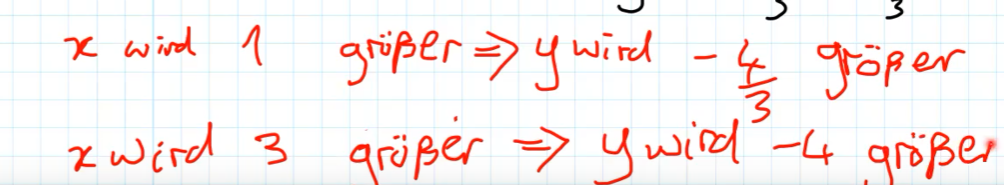 x wird 1 größer ⇒ y wird -4/3 größer
x wird 3 größer ⇒ y wird -4 größer